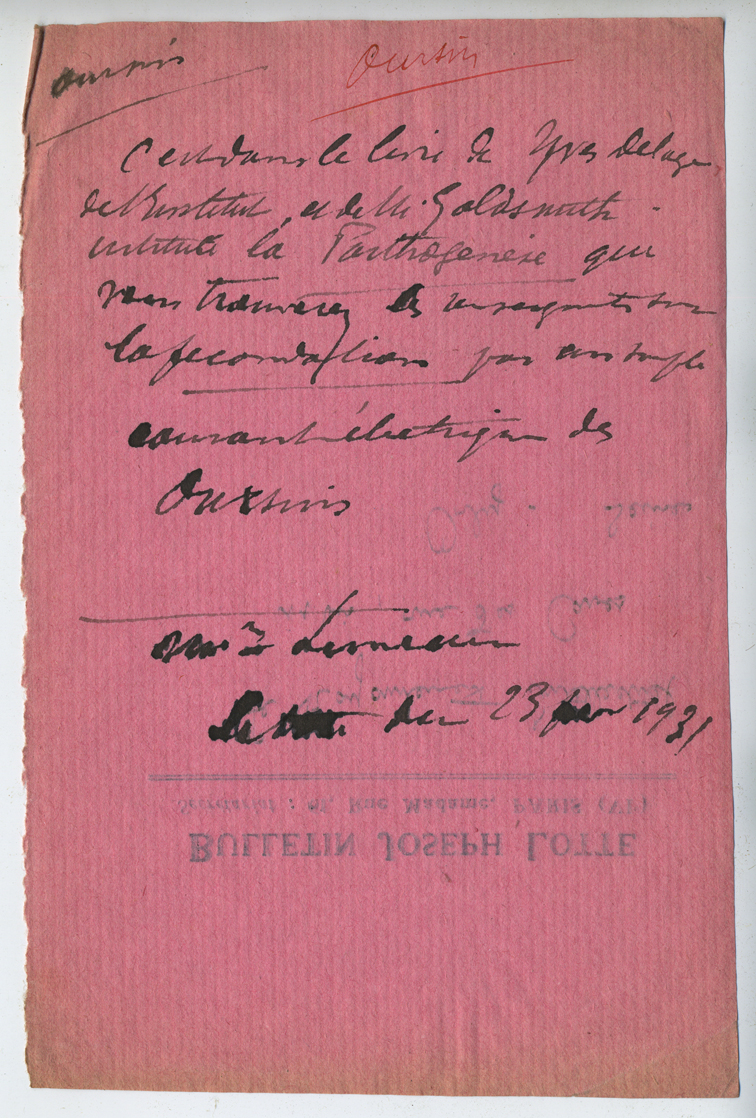 oursins
Oursin
C'est dans le livre de Yves Delage
de l'Institut, et de M. Goldsmith
intitulé la Parthogenèse que
vous trouverez les renseignements sur
la fecondation par un simple
courant électrique des
Oursins
23 1931
BULLETIN JOSEPH LOTTE
Secrétariat : 81, Rue Madame, PARIS (VIe)